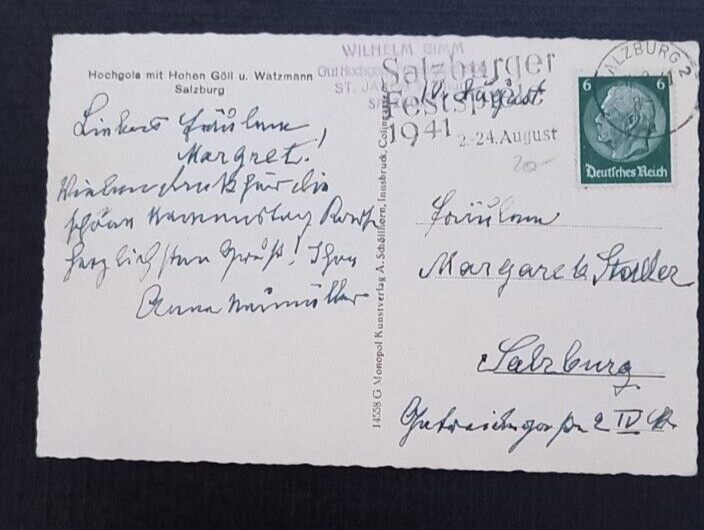 Hochgols mit Hohen Göll u. Watzmann
Salzburg
WILHELM GIMM
Gut Hochgols
ST. JA
Salzburger
Festspiele
1941 2.-24. August
10. August
SALZBURG 2
6 6
Deutsches Reich
20.-
Liebes Fräulein
Margret!
Vielen Dank für die
schöne Namenstag Karte
herzlichsten Gruß! Ihre
Anna Neumüller
14558 G Monopol Kunstverlag A. Schöllhorn, Innsbruck, Colingasse
Fräulein
Margarete Staller
Salzburg
Getreidegasse 2 IV St.